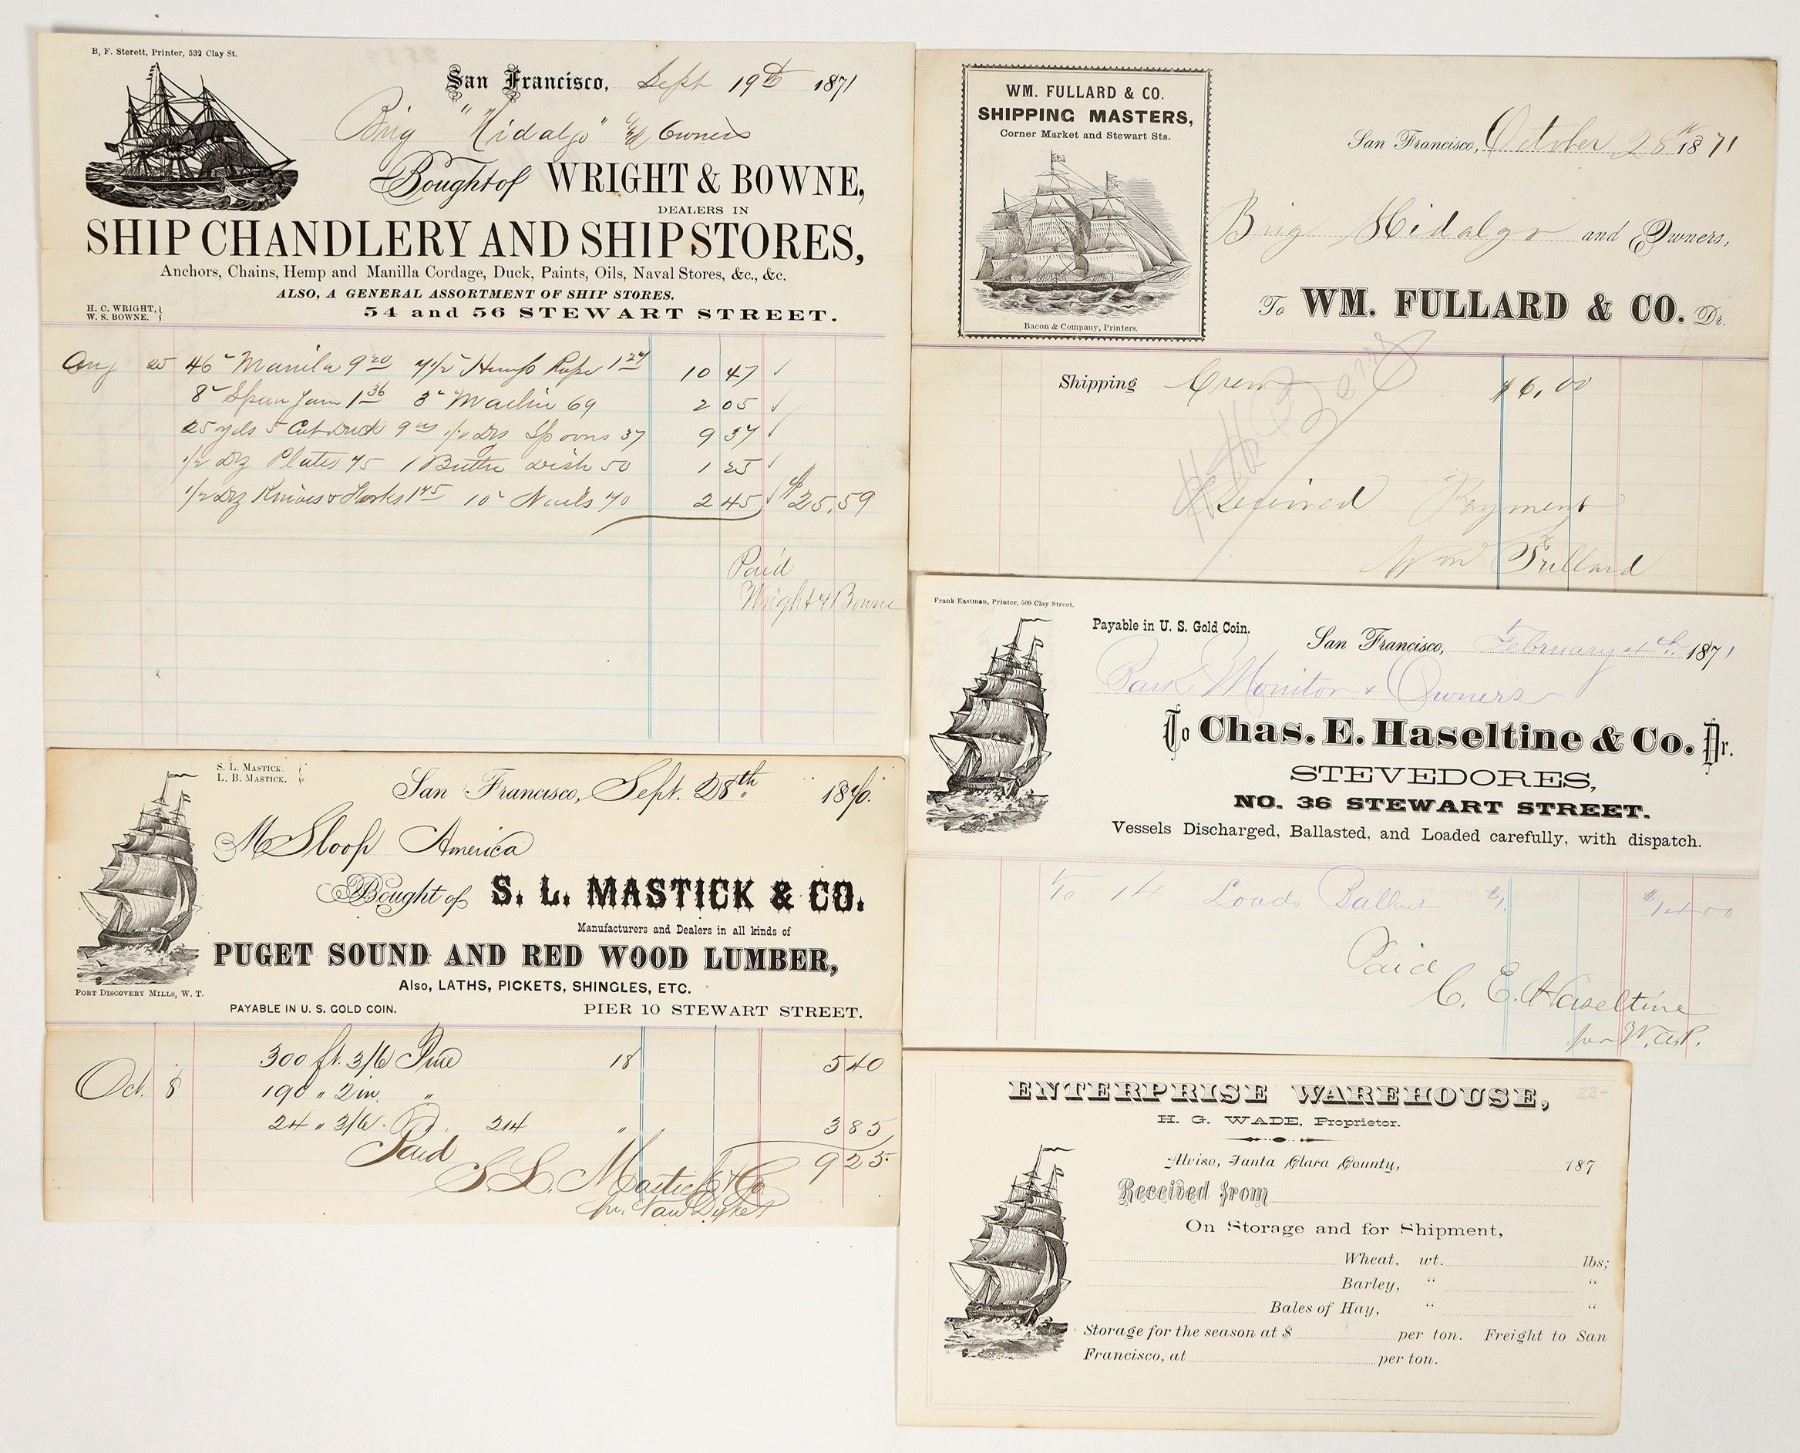 B. F. Sterett, Printer, 532 Clay St.
San Francisco, Sept 19th 1871
Brig "Hidalgo" & Owners
Bought of WRIGHT & BOWNE,
DEALERS IN
SHIP CHANDLERY AND SHIP STORES,
Anchors, Chains, Hemp and Manilla Cordage, Duck, Paints, Oils, Naval Stores, &c., &c.
ALSO, A GENERAL ASSORTMENT OF SHIP STORES.
H. C. WRIGHT,
W. S. BOWNE.
54 and 56 STEWART STREET.
Aug 25 46 Manila 9 20 7 1/2 Hemp Rope 1 27 10 47
8 Spun Yarn 1 36 3 Marlin 69 2 05
25 yds 5 Cot Duck 9 00 1/2 Dz Spoons 37 9 37
1/2 Dz Plates 75 1 Butter dish 50 1 25
1/2 Dz Knives & Forks 1 75 10 Nails 70 2 45 $25.59
Paid
Wright & Bowne
WM. FULLARD & CO.
SHIPPING MASTERS,
Corner Market and Stewart Sts.
Bacon & Company, Printers.
San Francisco, October 28th 1871
Brig Hidalgo and Owners,
To WM. FULLARD & CO. Dr.
Shipping Crew $6,00
Received Payment
Wm Fullard
Frank Eastman, Printer, 509 Clay Street.
Payable in U. S. Gold Coin.
San Francisco, February 4th 1871
Bark Monitor & Owners
To Chas. E. Haseltine & Co. Dr.
STEVEDORES,
NO. 36 STEWART STREET.
Vessels Discharged, Ballasted, and Loaded carefully, with dispatch.
To 14 Loads Ballast $1. $14 00
Paid
C. E. Haseltine
S. L. MASTICK.
L. B. MASTICK.
San Francisco, Sept. 28th 1870.
M Sloop America
Bought of S. L. MASTICK & CO.
Manufacturers and Dealers in all kinds of
PUGET SOUND AND RED WOOD LUMBER,
Also, LATHS, PICKETS, SHINGLES, ETC.
PORT DISCOVERY MILLS, W. T.
PAYABLE IN U. S. GOLD COIN.
PIER 10 STEWART STREET.
300 ft. 3/6 Pine 18 5 40
Oct. 8 190 " 2 in. "
24 " 3/6. 214 " 3 85
Paid 9 25
S. L. Mastick & Co
ENTERPRISE WAREHOUSE,
22-
H. G. WADE, Proprietor.
Alviso, Santa Clara County, 187
Received from
On Storage and for Shipment,
Wheat, wt. lbs;
Barley, " "
Bales of Hay, " "
Storage for the season at $ per ton. Freight to San
Francisco, at per ton.